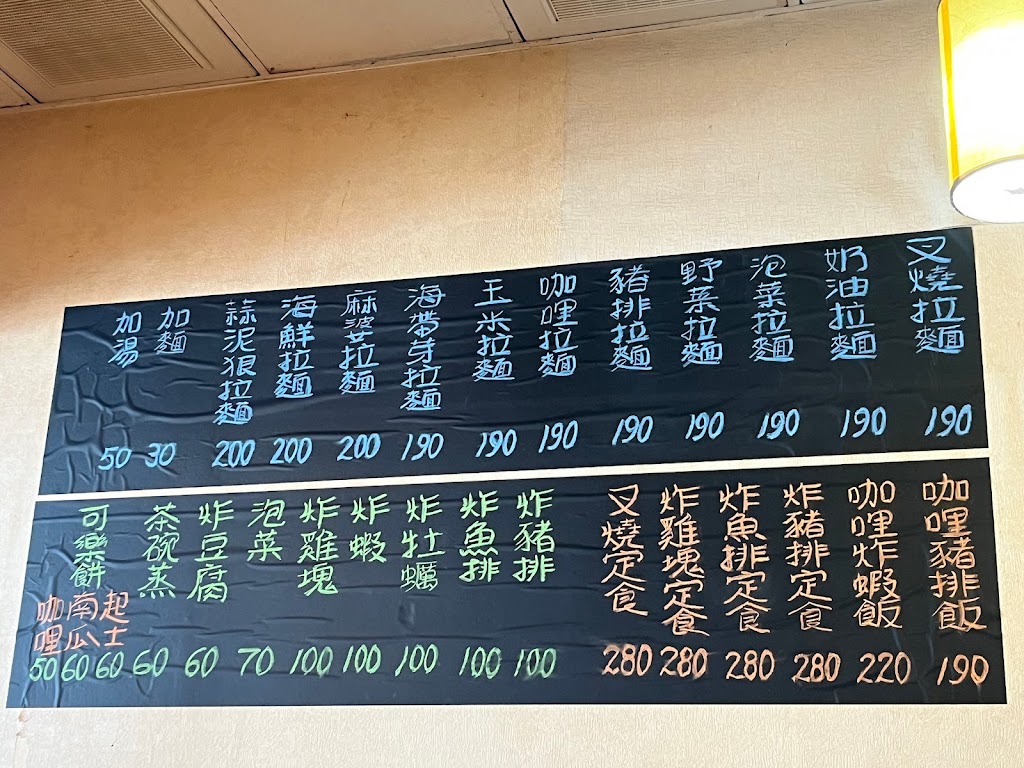 叉燒拉麵 190
奶油拉麵 190
泡菜拉麵 190
野菜拉麵 190
豬排拉麵 190
咖哩拉麵 190
玉米拉麵 190
海帶芽拉麵 190
麻婆拉麵 200
海鮮拉麵 200
蒜泥狠拉麵 200
加麵 30
加湯 50
咖哩豬排飯 190
咖哩炸蝦飯 220
炸豬排定食 280
炸魚排定食 280
炸雞塊定食 280
叉燒定食 280
炸豬排 100
炸魚排 100
炸牡蠣 100
炸蝦 100
炸雞塊 100
泡菜 70
炸豆腐 60
茶碗蒸 60
可樂餅
起士 60
南瓜 60
咖哩 50